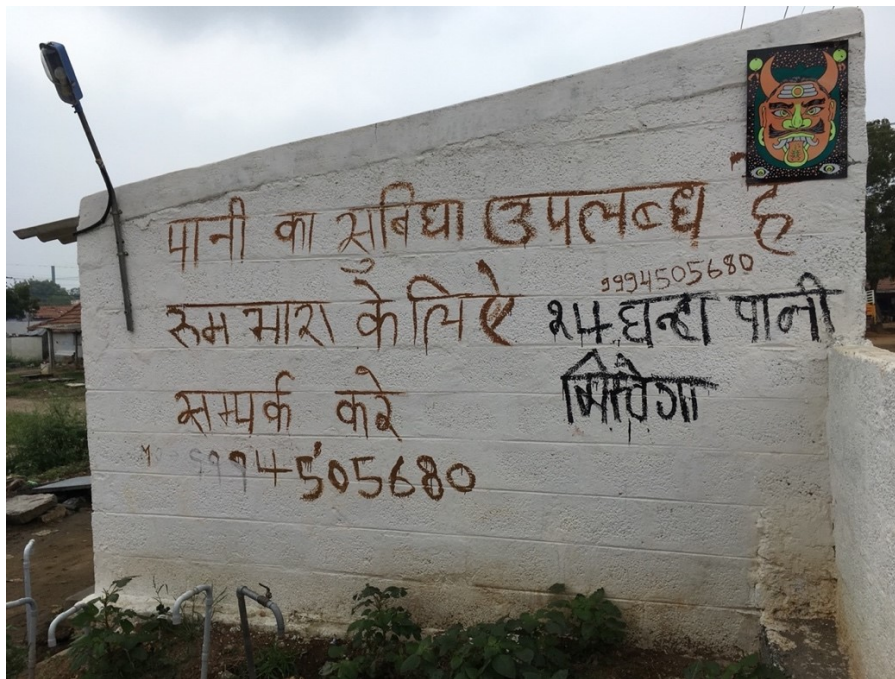 पानी का सुबिधा उपलब्ध है
9994505680
रूम भारा के लिऐ
२४ घन्टा पानी
मिलेगा
सम्पर्क करे
9994505680